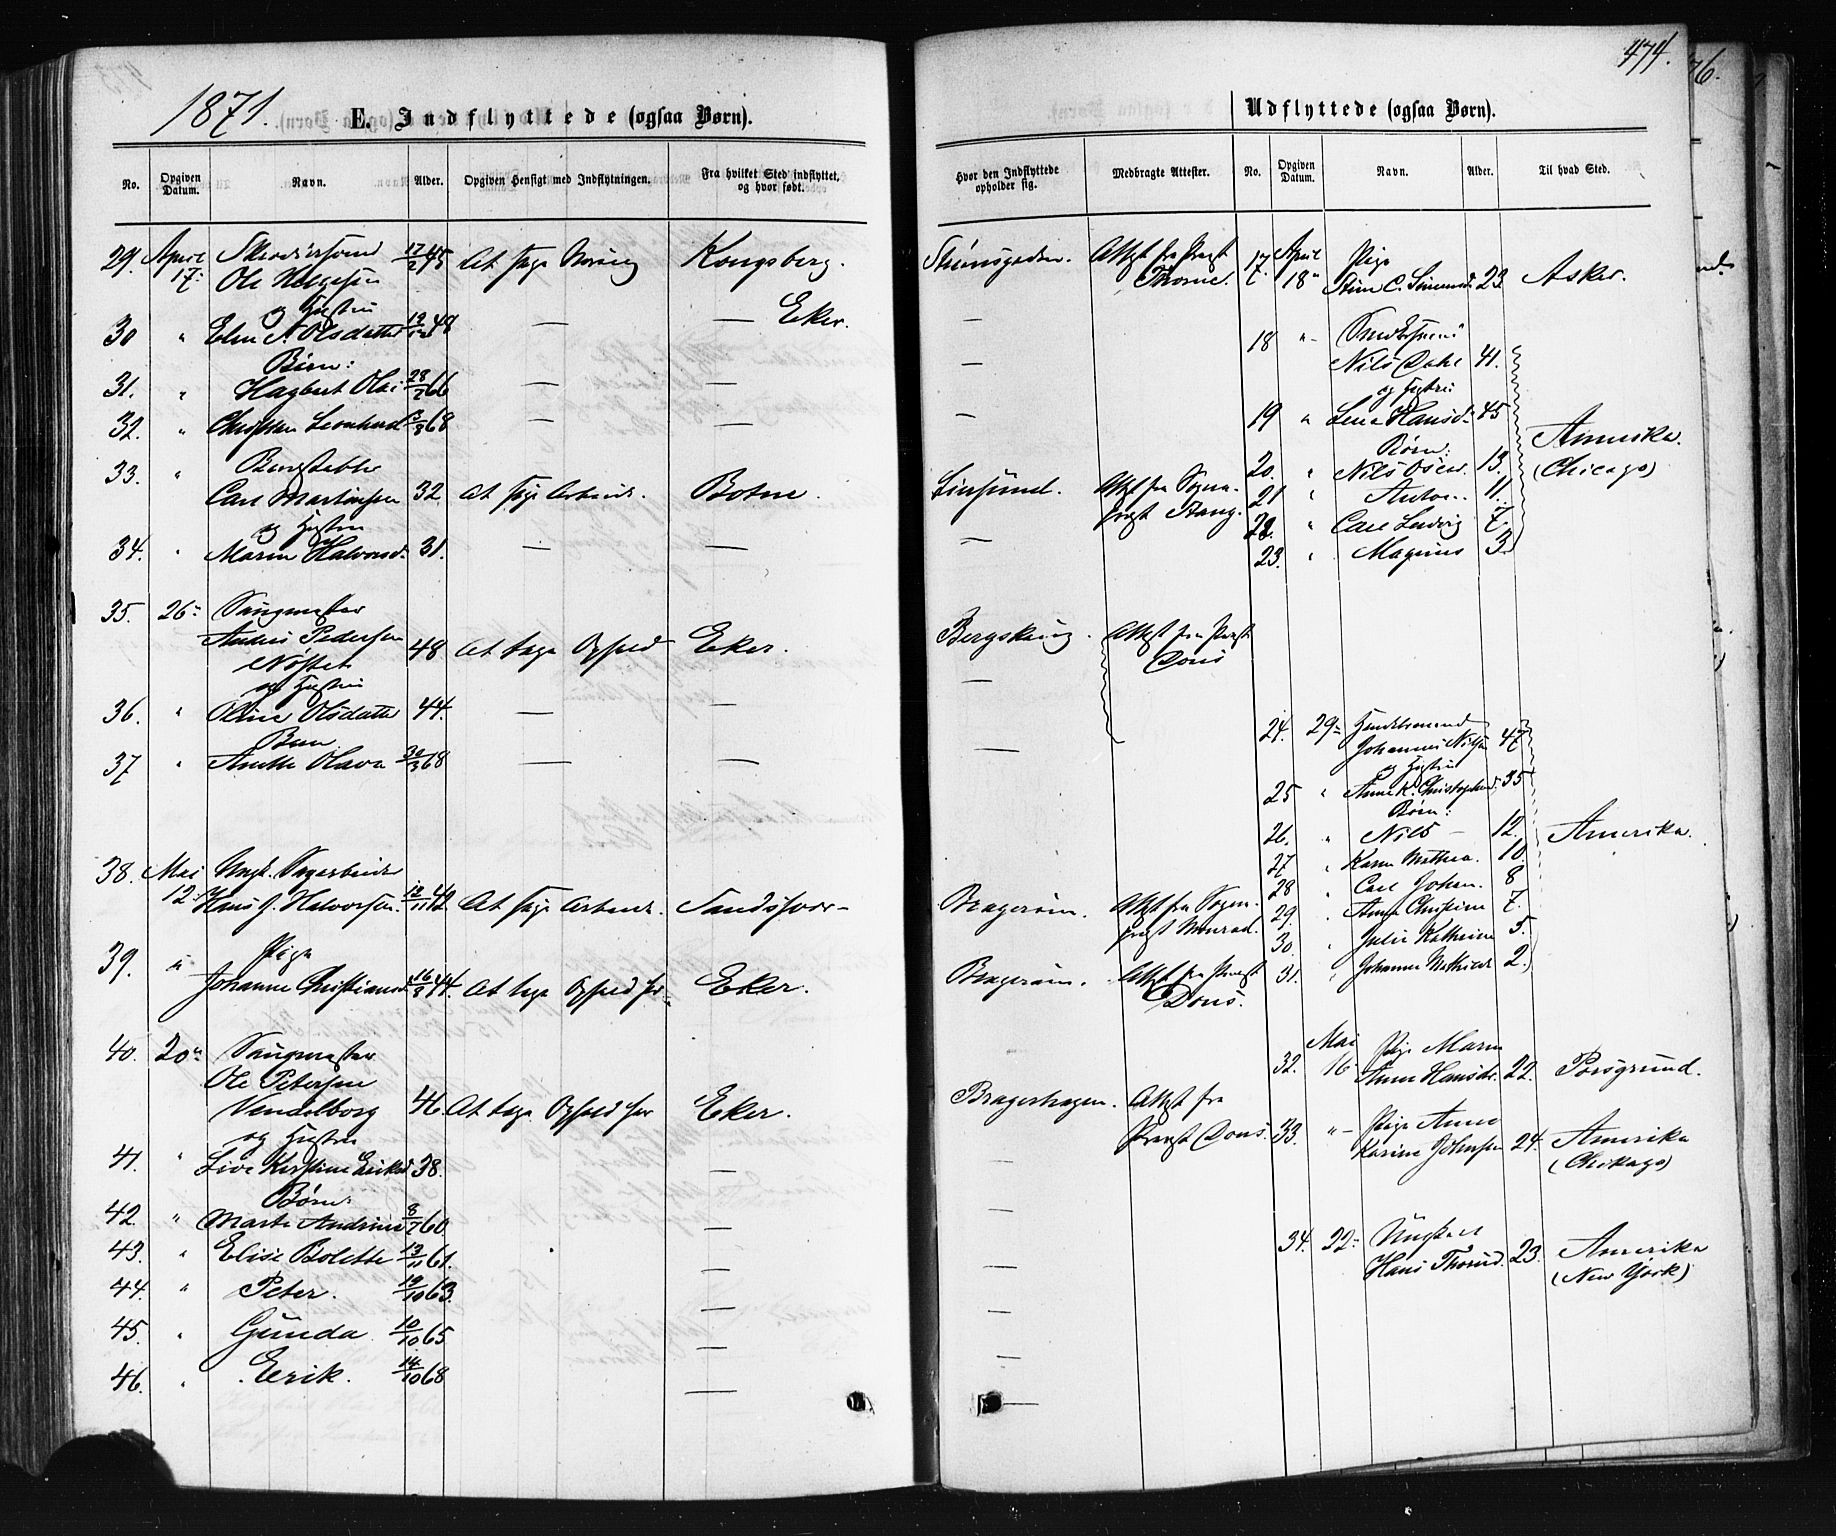 474.
76.
1871.
E. Indflyttede (ogsaa Børn).
No.
Opgiven Datum.
Navn.
Alder.
Opgiven Hensigt med Indflytningen.
Fra hvilket Sted indflyttet, og hvor født.
29. April 17.
Ole Helgesen 17/2 45 At søge Næring Kongsberg.
og Hustru
30 " Elen N. Olsdatter 48 — — Eker.
Børn:
31. " Hagbart Olai 28/2 66 —
32. " Christian Leonhard 68 —
33. "
Carl Martinsen 32. At søge Arbeide. Botne.
og Hustru
34. " Maren Halvorsd. 31. — —
35. 26. Saugmester
Anders Pedersen 48 At tage Ophold Eker.
Nøstet
og Hustru
36. " Oline Olsdatter 44. — —
Barn
37 " Anette Olava 30/3 68 — —
38. Mai 12. Ungk. Sagarbeider
Hans J. Halvorsen. 12/11 42 At søge Arbeide. Sandsvær
39. " Pige
Johanne Christiansd. 16/8 44. At tage Ophold her Eker.
40. 20. Saugmester
Ole Petersen
Vendelborg 46. At tage Ophold her Eker.
og Hustru
41. " Live Kirstine Eriksd. 38. —
Børn:
42. " Marte Andrine 8/7 60 —
43. " Elise Bolette 13/11 61. —
44. " Peter. 19/10 63. —
45. " Gunda 10/10 65 —
46. " Erik. 14/10 68 —
Udflyttede (ogsaa Børn).
Hvor den Indflyttede opholder sig.
Medbragte Attester.
No.
Opgiven Datum.
Navn.
Alder.
Til hvad Sted.
Attest fra Præst Thorne.
17. April 18. Pige
23 Asker.
—
18 "
Nils Dahl 41.
og Hustru
19 " Lene Hansd. 45
Børn:
Amerika.
(Chicago)
20. " Nils Oscar 13.
21 " Anton. 11.
22. " Carl Ludvig 7.
23. " Magnus 3.
Attest fra Sogne-
præst Stang.
—
Attest fra Præst
Dons
—
24. 29. Handelsmand
Johannes Nilsen 47
og Hustru
25 " Anne K. Christophersd. 35
Børn:
26. " Nils — 12. Amerika.
27 " Karen Mathea. 10
28 " Carl Johan. 8
29. " Anne Christine 7.
30. " Julie Kathrine 5.
31. " Johanne Mathilde 2.
Bragernæs. Attest fra Sogne-
præst Monrad.
Bragernæs. Attest fra Præst
Dons.
32. Mai 16. Pige Maren
Anne Hansdr. 22. Porsgrund.
Bragerhagen. Attest fra
Præst Dons.
33. " Pige Anne
Karine Johnsen 24. Amerika
(Chikago)
34. 22. Ungkarl
Hans Thorud. 23. Amerika
(New York)